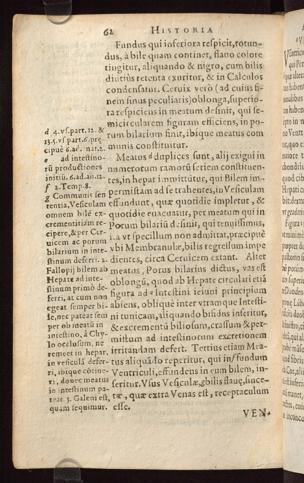 62 HISTORIA
Fundus qui inferiora respicit, rotun-
dus, à bile quam continet, flauo colore
tingitur, aliquando & nigro, cum bilis
diutiùs retenta exuritur, & in Calculos
condensatur. Ceruix verò (ad cuius fi-
nem sinus peculiaris) oblonga, superio-
ra respiciens in meatum desinit, qui se-
micircularem figuram efficiens, in po-
rum bilarium finit, ibique meatus com-
munis constituitur.
Meatus d duplices sunt, alij exigui in
numerorum ramorũ seriem constituen-
tes, in hepar immittitur, qui Bilem im-
permistam ad se trahentes, in Vesiculam
effundunt, quæ quotidie impletur, &
quotidie euacuatur, per meatum qui in
Porum bilariũ desinit, qui tenuissimus,
vt specillum non admittat, præcipuè
ob Membranulæ, bilis regressum impe
dientes, circa Ceruicem extant. Alter
meatus, Porus bilarius dictus, vas est
oblongũ, quod ab Hepate circulari e
figura ad Intestini ieiuni principium
abiens, obliquè inter vtramque Intesti-
ni tunicam, aliquando bisidns inseritur,
& excrementũ biliosum, crassum & per-
mistum ad intestinorum excretionem
irritandam defert. Tertius etiam Mea-
tus aliquãdo reperitur, qui in f fundum
Ventriculi, effundens in eum bilem, in-
seritur. Vsus Vesiculæ, g bilis flauę, suce-
tæ, quæ extra Venas est, receptaculum
esse.
VEN-
d 4. vs. part. 12. &
13. 5. vs. part. 6. pre
cipuè 6. ad. nat. 2.
e ad intestino-
rũ productiones
initiũ. 6. ad. ãn. 12.
f 2. Temp. 8.
g Communis sen
tentia, Vesiculam
omnem bilẽ ex-
crementitiã re-
cipere, & per Cer-
uicem ac porum
bilarium in inte-
stinum deferri. 2.
Fallopij bilem ab
Hepate ad inte-
stinum primò de-
ferri, at cum non
egeat semper bi-
le, nec pateat sem
per ob meatũ in
intestino, à Chy-
lo occlusum, re-
remeet in hepar,
in vesiculã defer-
ri, ibique cõtine-
ri, donec meatus
in intestinum pa-
teat. 3. Galeni est,
quam sequimur.